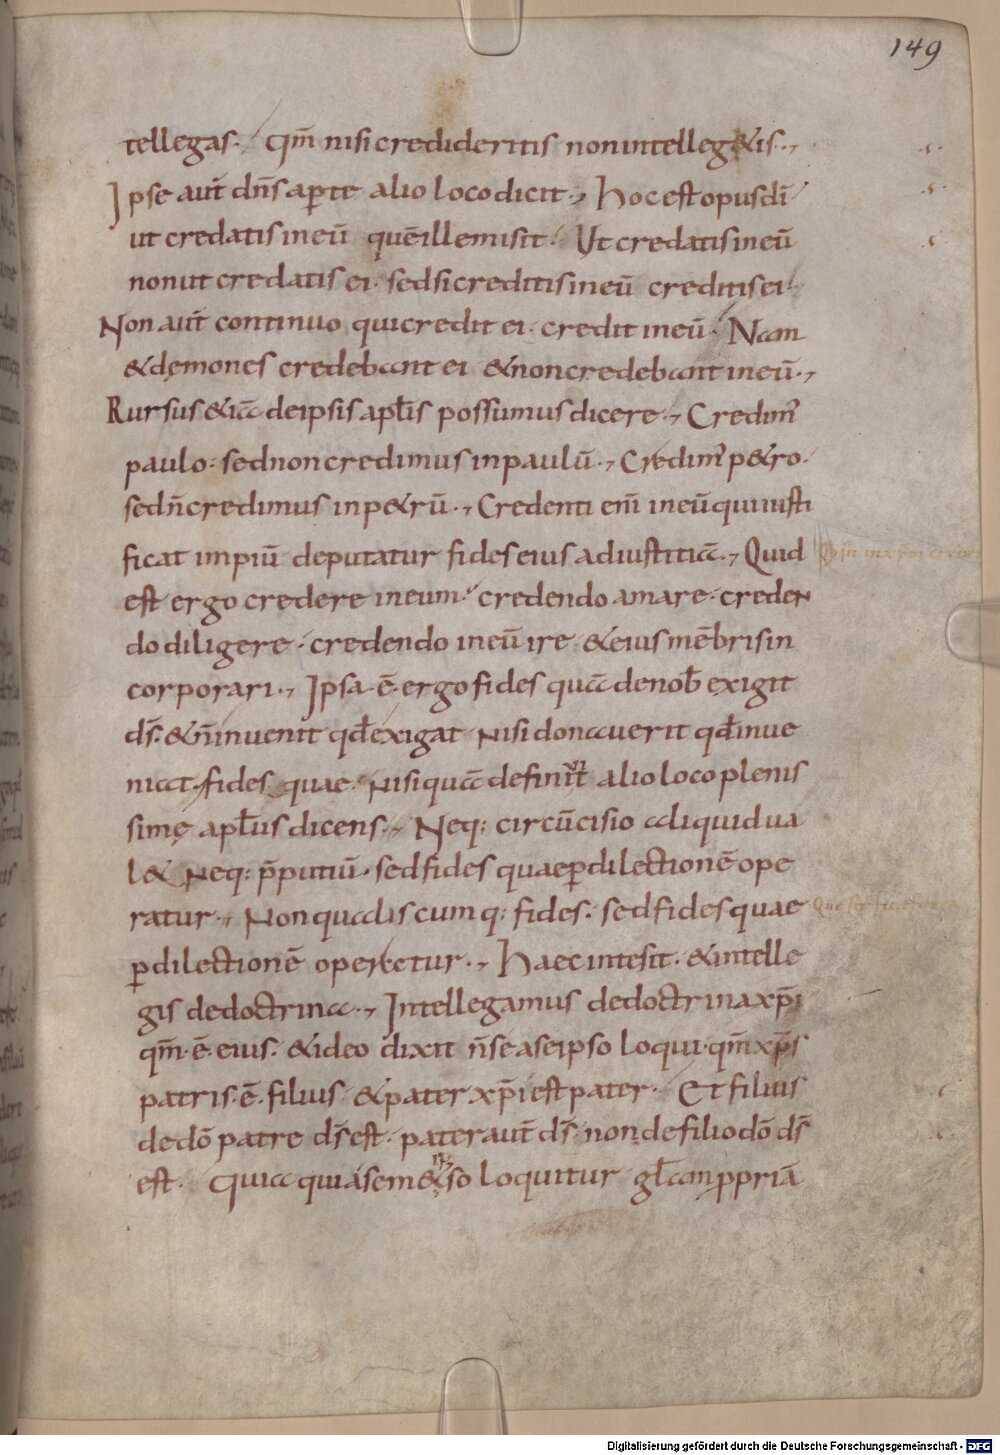 149
tellegas. qm̄ nisi credideritis non intelleg&is.,
Ipse aut̄ dn̄s aperte alio loco dicit., Hoc est opus dī
ut credatis in eū quē ille misit. Ut credatis in eū
non ut credatis ei. sed si creditis in eū creditis ei.
Non aut̄ continuo qui credit ei. credit in eū. Nam
& dęmones credebant ei & non credebant in eū.,
Rursus & ia de ipsis apl̄is possumus dicere., Credim'
paulo. sed non credimus in paulū., Credim' p&ro.
sed n̄ credimus in p&rū., Credenti enī in eū qui iusti
ficat impiū deputatur fides eius ad iustitia., Quid
est ergo credere in eum. credendo amare. creden
do diligere. credendo in eū ire. & eius mēbris in
corporari., Ipsa. ē. ergo fides quā de nob̄ exigit
ds̄. & n̄ inuenit qd̄ exigat nisi donauerit qd̄ inue
niat. fides quae. nisi quā definit alio loco pleniss
simę apl̄us dicens., Neq: circūcisio aliquid ua
l& neq: p̄putiū. sed fides quae ꝑ dilectionē ope
ratur., Non qualiscumq: fides. sed fides quae
ꝑ dilectionē operatur., Haec in te sit. & intelle
gis de doctrina., Intellegamus de doctrina xp̄i
qm̄. ē. eius. & ideo dixit n̄ se a se ipso loqui. qm̄ xp̄s
patris. ē. filius & pater xp̄i est pater. Et filius
de dō patre ds̄ est. pater aut̄ ds̄. non de filio dō ds̄
est. Quia qui a sem&so loquitur gl̄am ꝓpriā
Digitalisierung gefördert durch die Deutsche Forschungsgemeinschaft - DFG